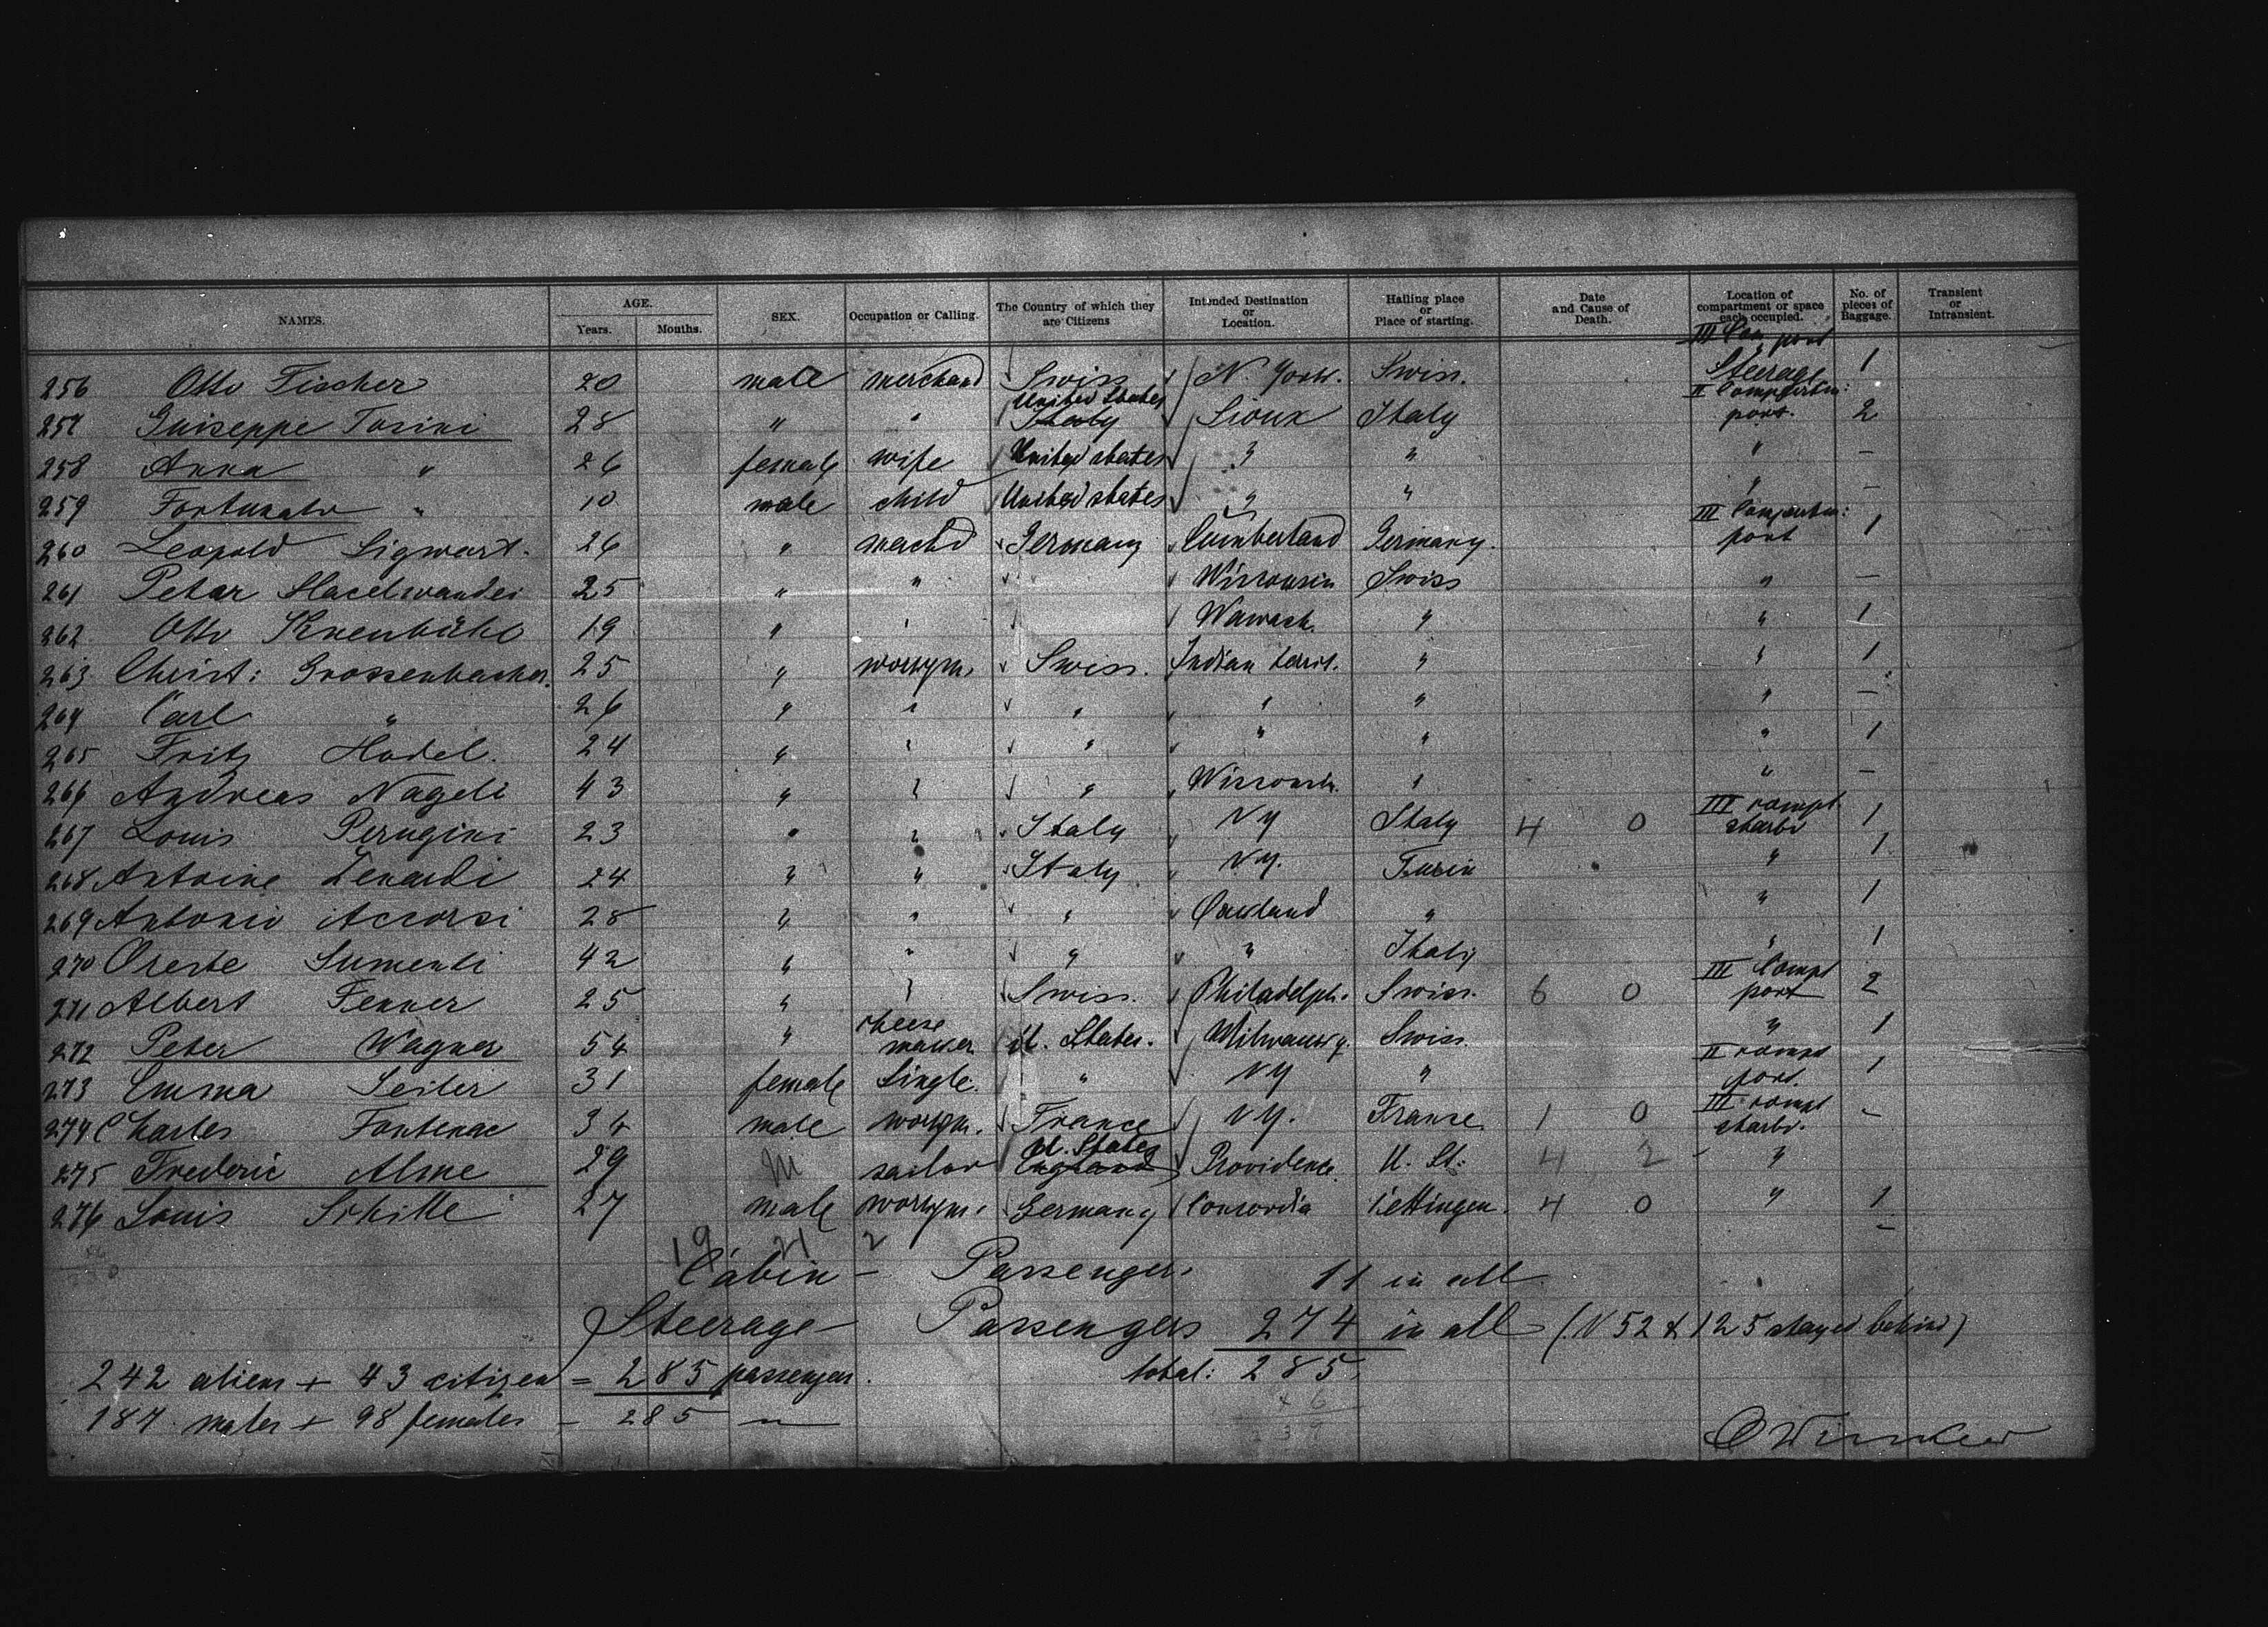 NAMES. AGE. Years. Months. SEX. Occupation or Calling. The Country of which they are Citizens Intended Destination or Location. Hailing place or Place of starting. Date and Cause of Death. Location of compartment or space each occupied. No. of pieces of Baggage. Transient or Intransient.
256 Otto Fischer 20 male merchand Swiss N. York. Swiss. III port Steerage 1
257 Guiseppe Torini 28 " " United States Italy Sioux Italy II port. 2
258 Anna " 26 female wife United states " " " –
259 Fortunato " 10 male child United states " " " –
260 Leopold Sigwart. 26 " Germany Cumberland Germany. III port 1
261 Peter 25 " " Wisconsin Swiss " –
262 Otto 19 " " " " 1
263 Christ: Grossenbacher. 25 " workm. Swiss. Indian territ. " " 1
264 Carl " 26 " " " " " " –
265 Fritz Hodel. 24 " " " " " " 1
266 Andreas Nageli 43 " " " " " –
267 Louis Perugini 23 " " Italy NY Italy 4 0 III compt starbd 1
268 Antoine Lenardi 24 " " Italy NY. Turin " 1
269 Antonio Accorsi 28 " " " Oakland " " 1
270 Oreste Sumenti 42 " " " " Italy " 1
271 Albert Fenner 25 " " Swiss. Philadelph. Swiss. 6 0 III Compt port 2
272 Peter Wagner 54 " cheese maker U. States. Swiss. " 1
273 Emma Seiler 31 female single. " NY " II compt port. 1
274 Charles Fontenac 34 male workm. France NY. France 1 0 III compt starbd. –
275 Frederic Alme 29 M sailor U. States England Providence. U. St: 4 2 – "
276 Louis Schille 27 male workm. Germany Concordia 4 0 " 1
19 21 2
Cabin – Passengers 11 in all
Steerage – Passengers 274 in all (N 52 & 125 stayed behind)
242 aliens + 43 citizen = 285 passengers. total: 285
187 males + 98 females – 285 –